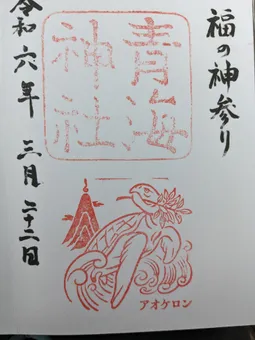 福の神参り
青海
神社
令和六年 三月 二十二日
アオケロン